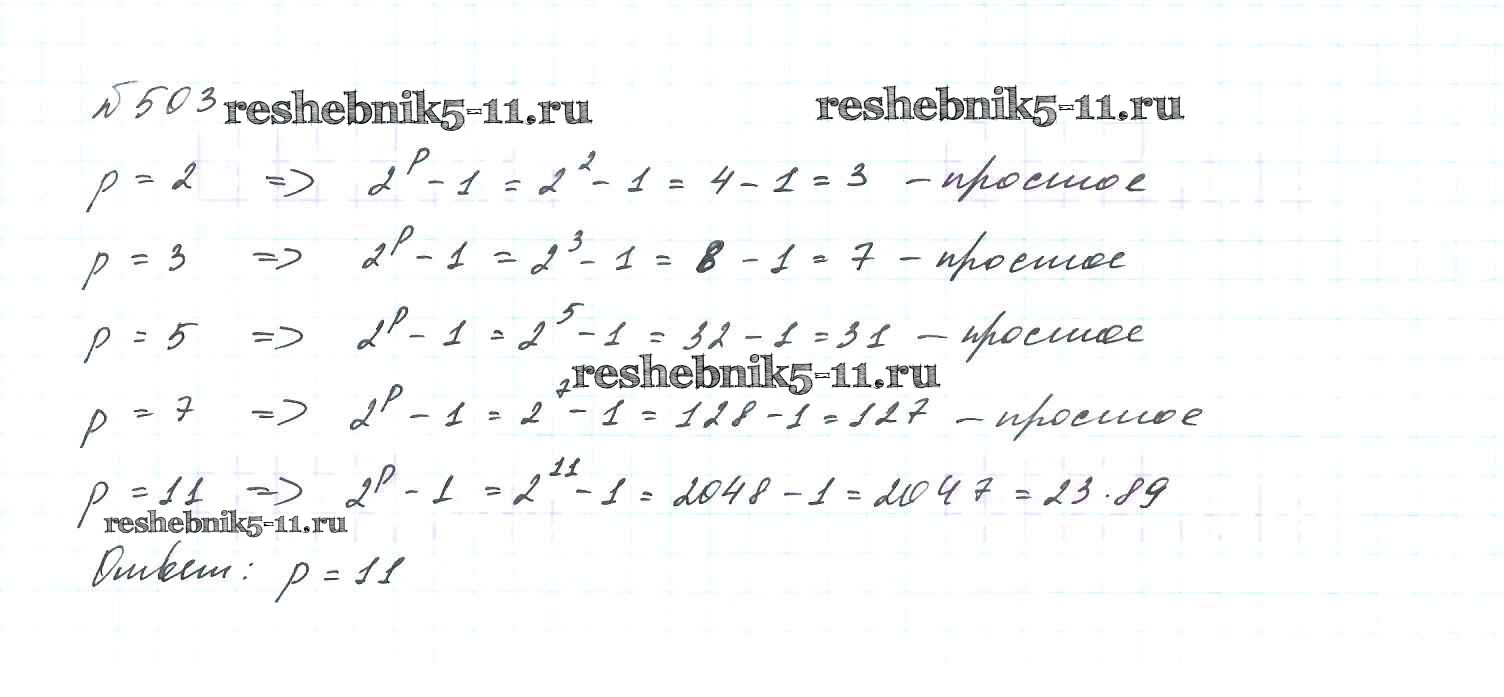 №503 reshebnik5-11.ru reshebnik5-11.ru
p = 2 => 2^p - 1 = 2^2 - 1 = 4 - 1 = 3 - простое
p = 3 => 2^p - 1 = 2^3 - 1 = 8 - 1 = 7 - простое
p = 5 => 2^p - 1 = 2^5 - 1 = 32 - 1 = 31 - простое
reshebnik5-11.ru
p = 7 => 2^p - 1 = 2^7 - 1 = 128 - 1 = 127 - простое
p = 11 => 2^p - 1 = 2^11 - 1 = 2048 - 1 = 2047 = 23·89
reshebnik5-11.ru
Ответ: p = 11